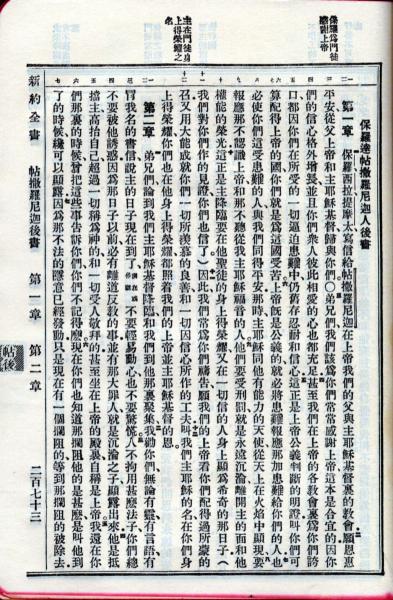 保羅爲門徒感謝上帝
主在門徒身上得榮耀之名
保羅達帖撒羅尼迦人後書
第一章 保羅西拉提摩太寫信給帖撒羅尼迦在上帝我們的父與主耶穌基督裏的教會願恩惠
平安從父上帝和主耶穌基督歸與你們○弟兄們我們該爲你們常常感謝上帝這本是合宜的因你
們的信心格外增長並且你們衆人彼此相愛的心也都充足甚至我們在上帝的各教會裏爲你們誇
口都因你們在所受的一切逼迫患難中仍舊存忍耐和信心這正是上帝公義判斷的明證叫你們可
算配得上帝的國你們就是爲這國受苦上帝旣是公義的就必將患難報應那加患難給你們的人也
必使你們這受患難的人與我們同得平安那時主耶穌同他有能力的天使從天上在火焰中顯現要
報應那不認識上帝和那不聽從我主耶穌福音的人他們要受刑罰就是永遠沉淪離開主的面和他
權能的榮光這正是主降臨要在他聖徒的身上得榮耀又在一切信的人身上顯爲希奇的那日子(
我們對你們作的見證你們也信了)因此我們常爲你們禱告願我們的上帝看你們配得過所蒙的
召又用大能成就你們一切所羨慕的良善和一切因信心所作的工夫叫我們主耶穌的名在你們身
上得榮耀你們也在他身上得榮耀都照着我們的上帝並主耶穌基督的恩
第二章 弟兄們論到我們主耶穌基督降臨和我們到他那裏聚集我勸你們無論有靈有言語有
冒我名的書信說主的日子現在到了不要輕易動心也不要驚慌人不拘用甚麽法子你們總
不要被他誘惑因爲那日子以前必有離道反教的事並有那大罪人就是沉淪之子顯露出來他是抵
擋主高抬自己超過一切稱爲神的和一切受人敬拜的甚至坐在上帝的殿裏自稱是上帝我還在你
們那裏的時候曾把這些事告訴你們你們不記得麽現在你們也知道那攔阻他的是甚麽是叫他到
了的時候纔可以顯露因爲那不法的隱意已經發動只是現在有一個攔阻的等到那攔阻的被除去
新約全書 帖撒羅尼迦後書 第一章 第二章 二百七十三
帖後